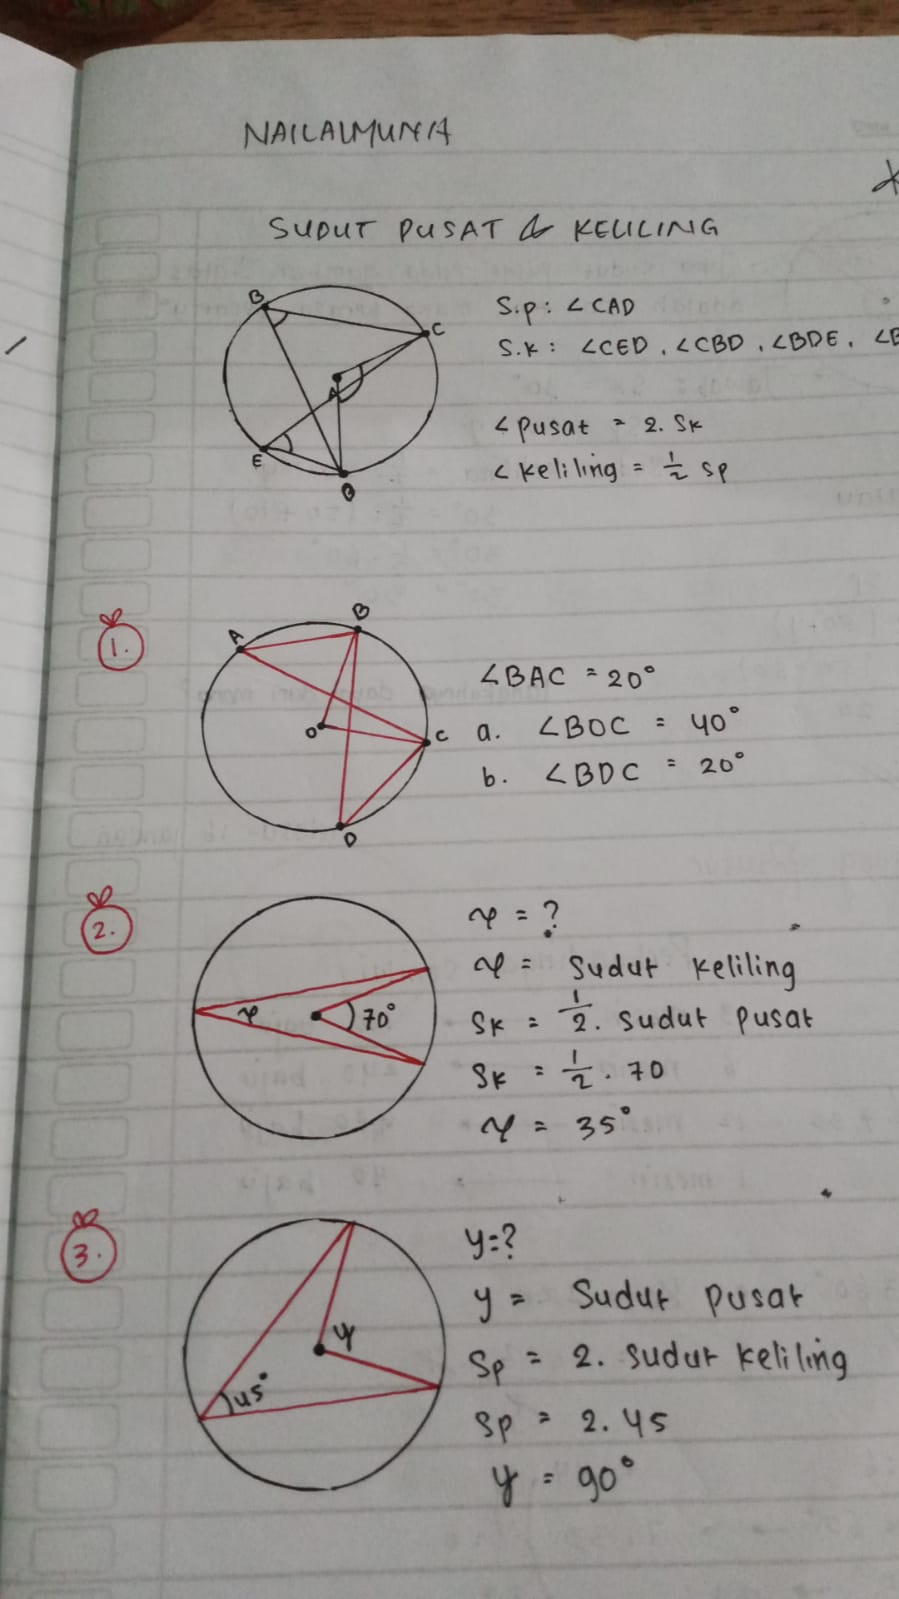 NAILALMUNA
SUDUT PUSAT & KELILING
B
C
A
E
D
S.p : ∠CAD
S.K : ∠CED, ∠CBD, ∠BDE,
∠pusat = 2. SK
∠keliling = 1/2 Sp
1.
A
B
O
C
D
∠BAC = 20°
a. ∠BOC = 40°
b. ∠BDC = 20°
2.
x
70°
x = ?
x = Sudut keliling
SK = 1/2. sudut pusat
SK = 1/2 . 70
x = 35°
3.
y
45°
y = ?
y = Sudut pusat
Sp = 2. sudut keliling
Sp = 2. 45
y = 90°